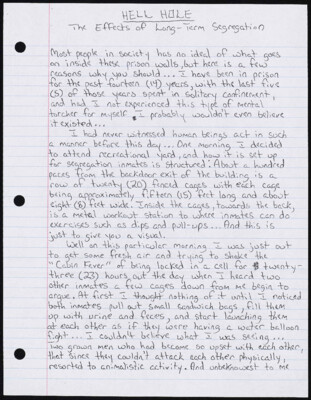 HELL HOLE
The Effects of Long-Term Segregation
Most people in society has no ideal of what goes
on inside these prison walls, but here is a few
reasons why you should... I have been in prison
for the past fourteen (14) years, with the last five
(5) of those years spent in solitary confinement,
and had I not experienced this type of mental
torcher for myself, I probably wouldn't even believe
it existed...
I had never witnessed human beings act in such
a manner before this day... One morning I decided
to attend recreational yard, and how it is set up
for segregation inmates is structured. About a hundred
paces from the backdoor exit of the building is a
row of twenty (20) fenced cages with each cage
being approximately fifteen (15) feet long and about
eight (8) feet wide. Inside the cages, towards the back,
is a metal workout station to where inmates can do
exercises such as dips and pull-ups... And this is
just to give you a visual.
Well on this particular morning I was just out
to get some fresh air and trying to shake the
"Cabin Fever" of being locked in a cell for twenty-
three (23) hours out the day when I heard two
other inmates a few cages down from me begin to
argue. At first I thought nothing of it until I noticed
both inmates pull out small sandwich bags, fill them
up with urine and feces, and start launching them
at each other as if they were having a water balloon
fight... I couldn't believe what I was seeing...
Two grown men who had become so upset with each other,
that since they couldn't attack each other physically,
resorted to animalistic activity. And unbeknownst to me